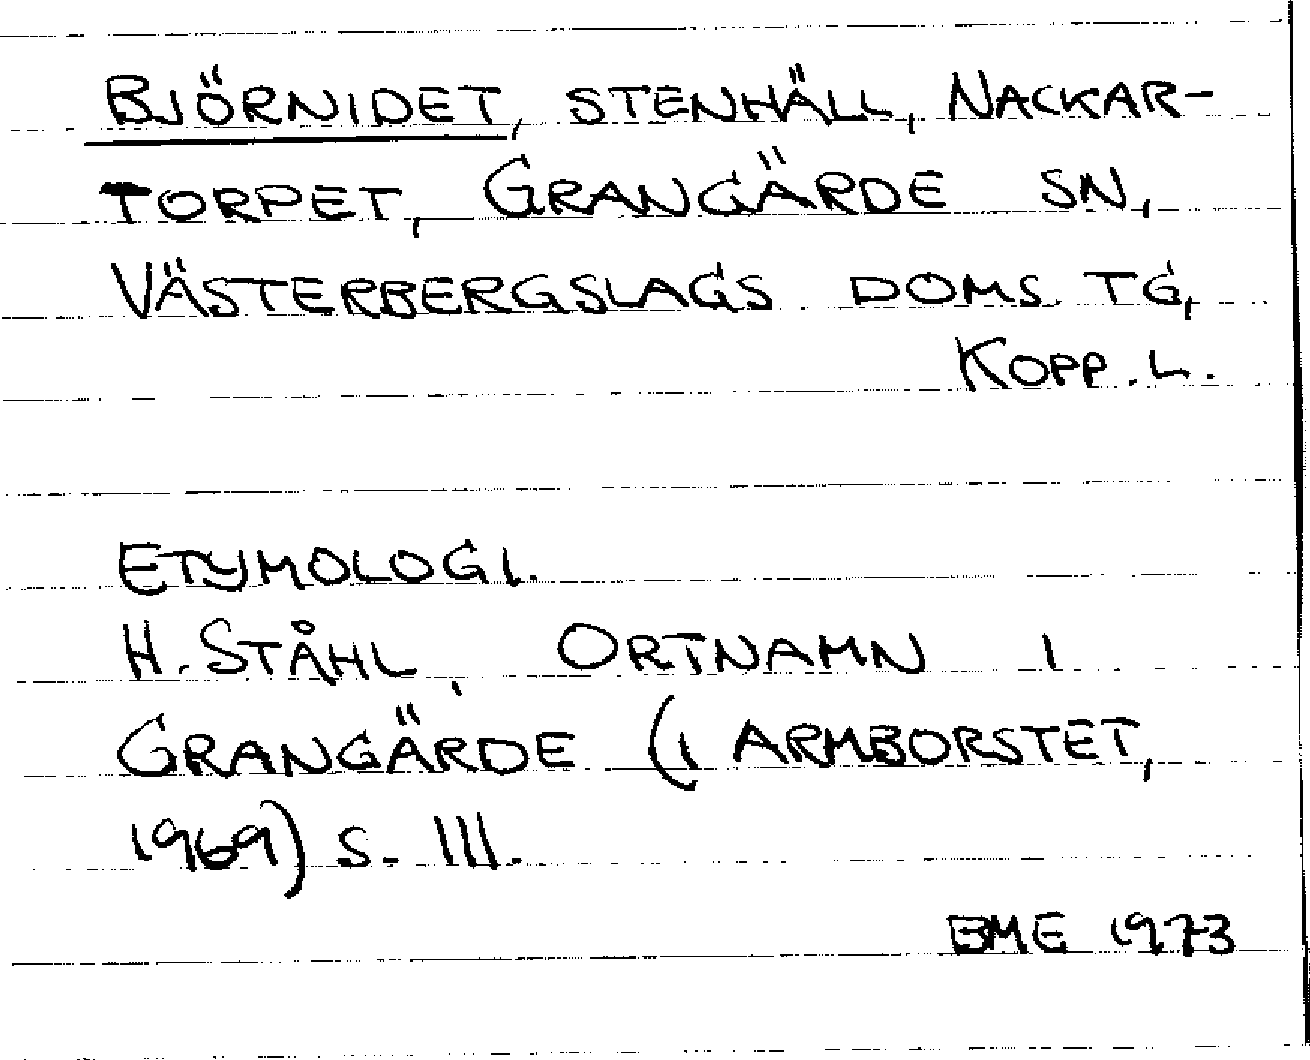 BJÖRNIDET, STENHÄLL, NACKAR-
TORPET, GRANGÄRDE SN,
VÄSTERBERGSLAGS DOMS TG,
KOPP. L.
ETYMOLOGI.
H. STÅHL, ORTNAMN I
GRANGÄRDE (I ARMBORSTET,
1969) S. 111.
BME 1973